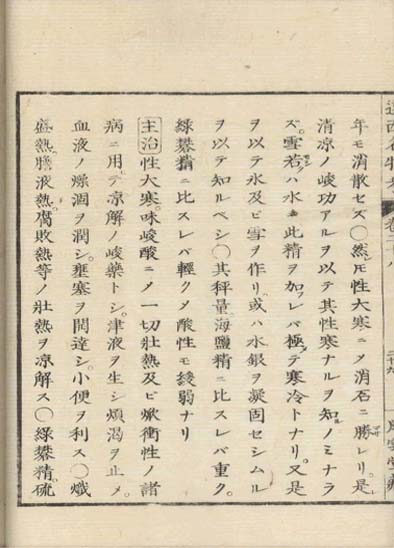 年モ消散セズ○然𪜈性大寒ニ〆消石ニ勝レリ。是
清凉ノ峻功アルヲ以テ其性寒ナルヲ知ノミナラ
ズ。雪若クハ水ニ此精ヲ加レバ極テ寒冷トナリ。又是
ヲ以テ氷及ビ雪ヲ作リ。或ハ水銀ヲ凝固セシムル
ヲ以テ知ルベシ○其秤量海鹽精ニ比スレバ重ク。
綠礬精ニ比スレバ輕ク〆酸性モ緩弱ナリ
主治 性大寒。味峻酸ニ〆一切壯熱及ビ焮衝性ノ諸
病ニ用テ凉解ノ峻藥トシ。津液ヲ生シ煩渴ヲ止メ。
血液ノ燥涸ヲ潤シ。壅塞ヲ開達シ。小便ヲ利ス○熾
盛熱。膽液熱。腐敗熱等ノ壯熱ヲ凉解ス○綠礬精。硫